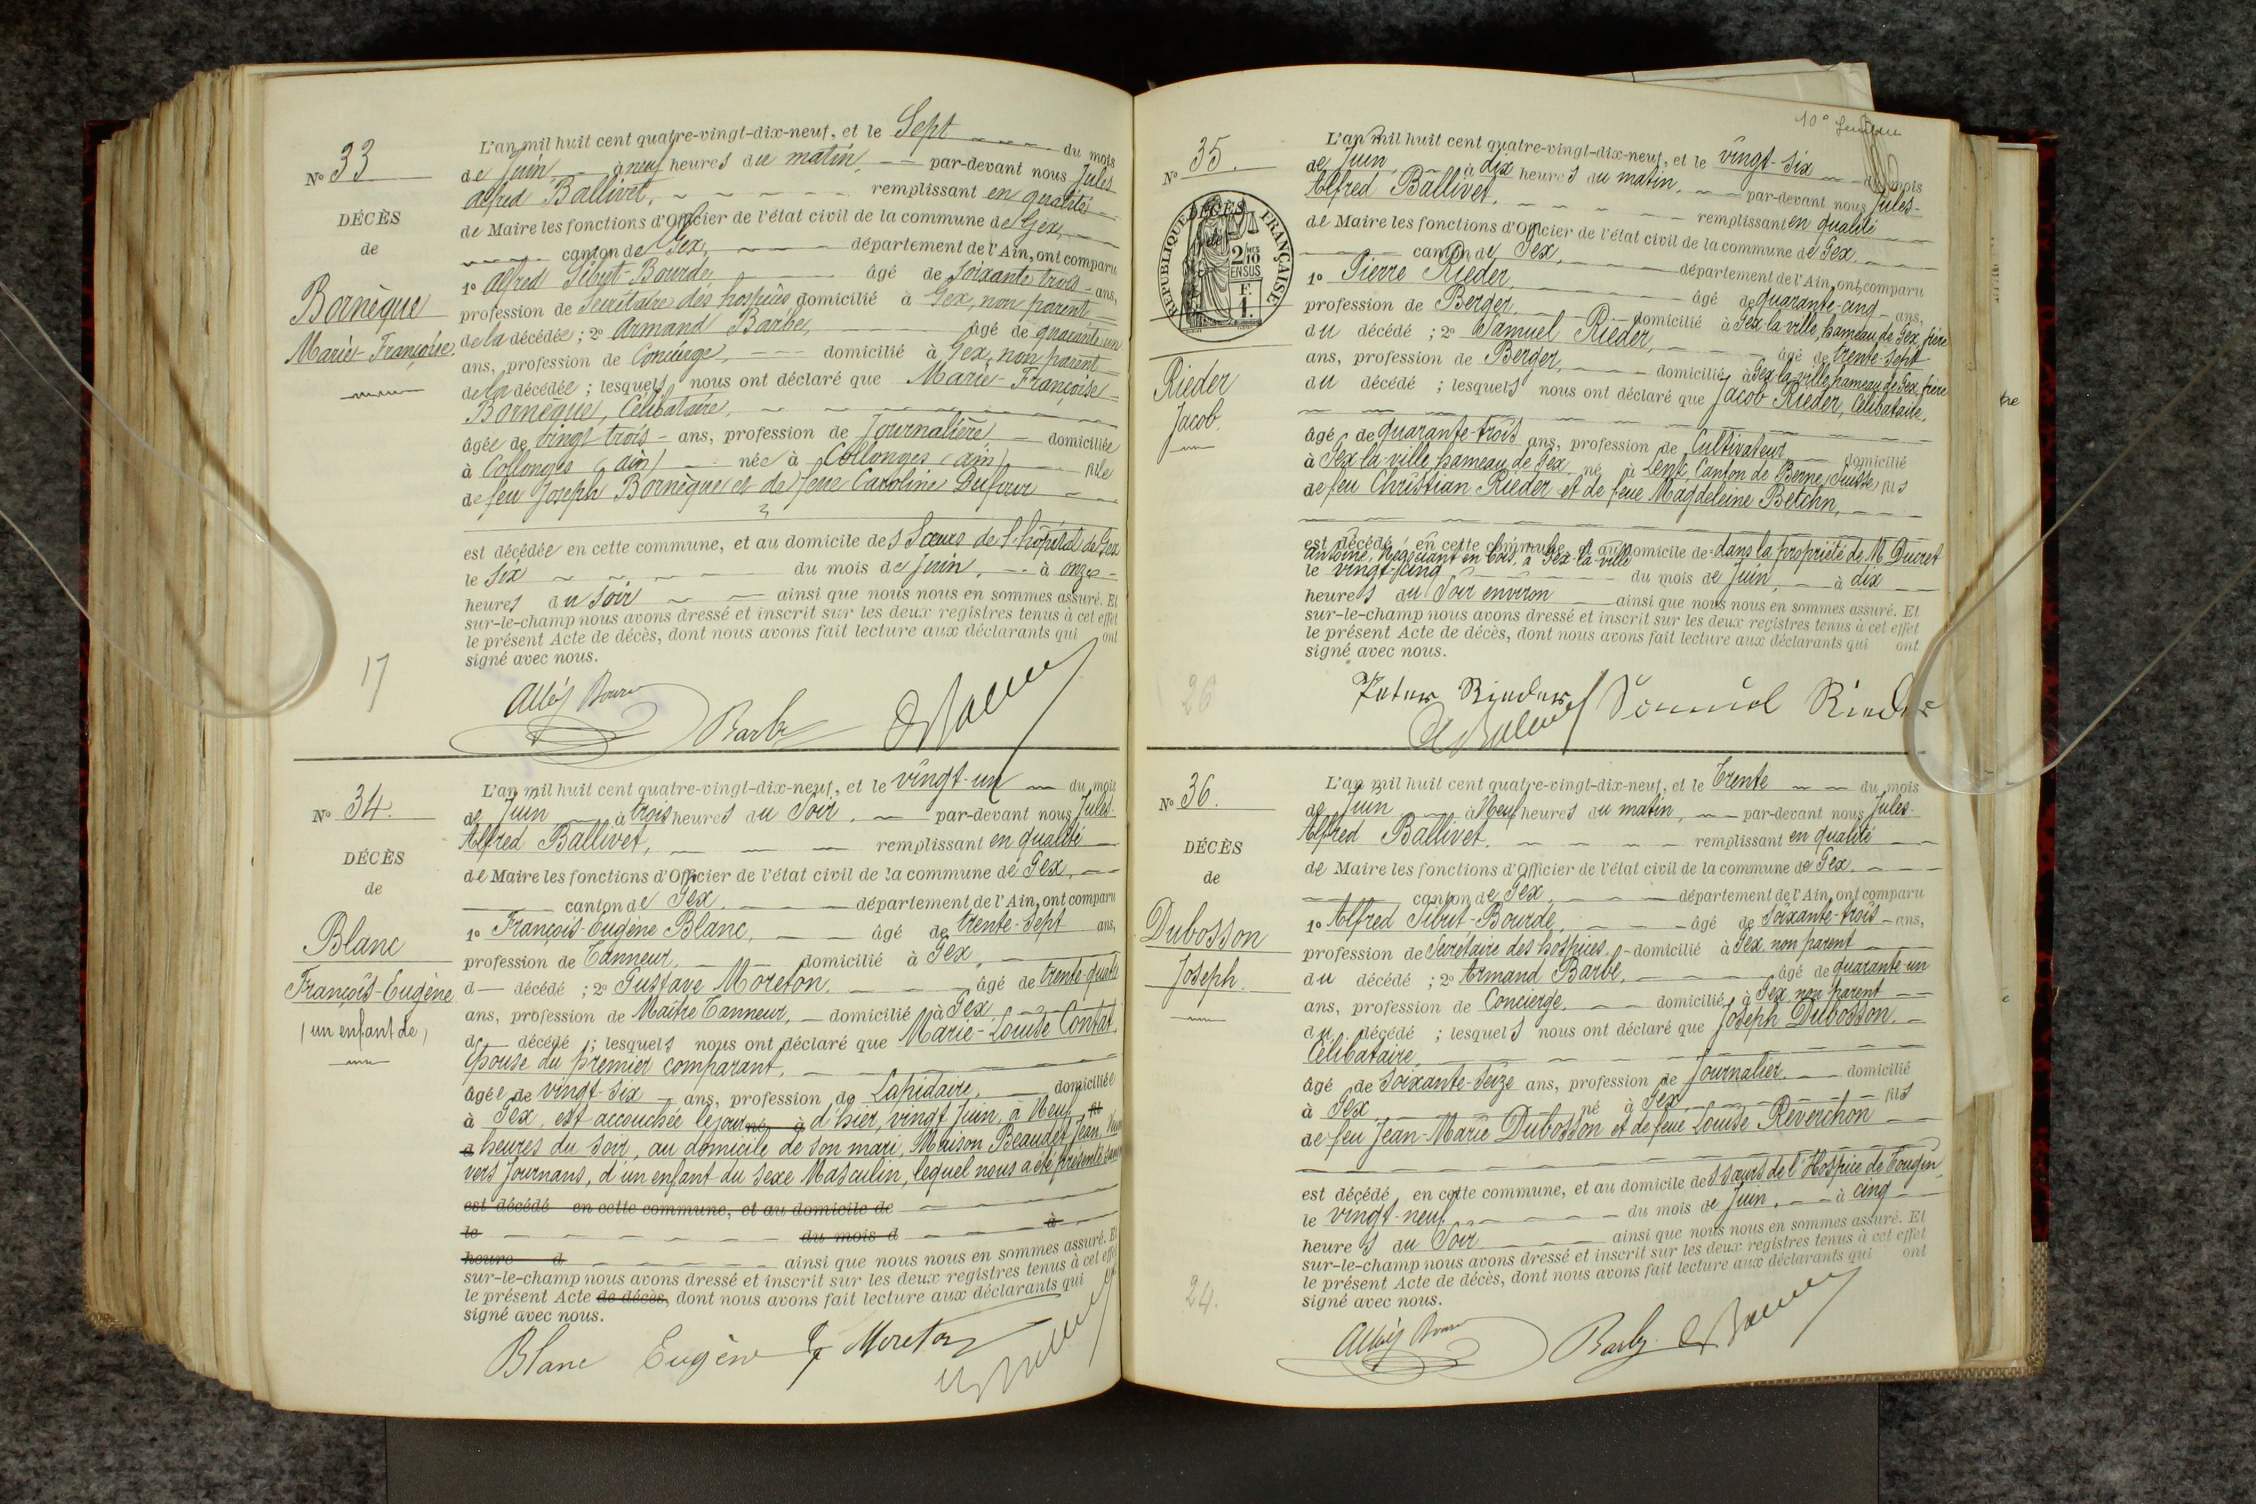 N° 33
DÉCÈS
de
Bornèque
Marie-Françoise
L'an mil huit cent quatre-vingt-dix-neuf, et le Sept du mois
de Juin à neuf heures du matin, par-devant nous Jules
Alfred Ballivet, remplissant en qualité
de Maire les fonctions d'Officier de l'état civil de la commune de Gex,
canton de Gex, département de l'Ain, ont comparu
1° Alfred Sibut-Bourde, âgé de soixante trois ans,
profession de Secrétaire des hospices domicilié à Gex, non parent
de la décédée ; 2° Armand Barbe, âgé de quarante un
ans, profession de Concierge, domicilié à Gex, non parent
de la décédée ; lesquels nous ont déclaré que Marie-Françoise
Bornèque, Célibataire,
âgée de vingt trois ans, profession de Journalière, domiciliée
à Collonges (ain) née à Collonges (ain) fille
de feu Joseph Bornèque et de feue Caroline Dufour
est décédée en cette commune, et au domicile des Sœurs de l'hôpital de Gex
le six du mois de Juin, à onze
heures du soir ainsi que nous nous en sommes assuré. Et
sur-le-champ nous avons dressé et inscrit sur les deux registres tenus à cet effet
le présent Acte de décès, dont nous avons fait lecture aux déclarants qui ont
signé avec nous.
17
Barbe
N° 34.
DÉCÈS
de
Blanc
François-Eugène
(un enfant de)
L'an mil huit cent quatre-vingt-dix-neuf, et le vingt-un du mois
de Juin à trois heures du Soir, par-devant nous Jules-
Alfred Ballivet, remplissant en qualité
de Maire les fonctions d'Officier de l'état civil de la commune de Gex,
canton de Gex, département de l'Ain, ont comparu
1° François-Eugène Blanc, âgé de trente-sept ans,
profession de Tanneur, domicilié à Gex,
d décédé ; 2° Gustave Moreton, âgé de trente-quatre
ans, profession de Maître Tanneur, domicilié à Gex
d décédé ; lesquels nous ont déclaré que Marie-Louise Contat,
épouse du premier comparant,
âgée de vingt-six ans, profession de Lapidaire, domiciliée
à Gex, est accouchée le jour né à d'hier, vingt Juin, à Neuf fil
a heures du soir, au domicile de son mari, Maison Beaudet Jean,
vers Journans, d'un enfant du sexe Masculin, lequel nous a été présenté sans
est décédé en cette commune, et au domicile de
le du mois d à
heure d ainsi que nous nous en sommes assuré. Et
sur-le-champ nous avons dressé et inscrit sur les deux registres tenus à cet effet
le présent Acte de décès, dont nous avons fait lecture aux déclarants qui
signé avec nous.
Blanc Eugène G Moreton
10e
N° 35.
RÉPUBLIQUE FRANÇAISE
DÉCÈS
de
2/10
EN SUS
F.
1.
Rieder
Jacob.
L'an mil huit cent quatre-vingt-dix-neuf, et le vingt-six du mois
de Juin, à dix heures du matin, par-devant nous Jules-
Alfred Ballivet, remplissant en qualité
de Maire les fonctions d'Officier de l'état civil de la commune de Gex,
canton de Gex, département de l'Ain, ont comparu
1° Pierre Rieder, âgé de quarante-cinq ans,
profession de Berger, domicilié à Gex la ville, hameau de Gex, frère
du décédé ; 2° Samuel Rieder, âgé de trente-sept
ans, profession de Berger, domicilié à Gex la ville, hameau de Gex, frère
du décédé ; lesquels nous ont déclaré que Jacob Rieder, Célibataire,
âgé de quarante-trois ans, profession de Cultivateur domicilié
à Gex la ville hameau de Gex, né à Lenk, Canton de Berne, Suisse, fils
de feu Christian Rieder et de feue Magdeleine Betchn,
est décédé en cette commune, et au domicile de dans la propriété de M. Ducret
Antoine, Négociant en bois, à Gex-la-ville
le vingt-cinq du mois de Juin, à dix
heures du Soir environ ainsi que nous nous en sommes assuré. Et
sur-le-champ nous avons dressé et inscrit sur les deux registres tenus à cet effet
le présent Acte de décès, dont nous avons fait lecture aux déclarants qui ont
signé avec nous.
26
Peter Rieder Samuel Rieder
N° 36.
DÉCÈS
de
Dubosson
Joseph.
L'an mil huit cent quatre-vingt-dix-neuf, et le Trente du mois
de Juin à Neuf heures du matin, par-devant nous Jules-
Alfred Ballivet, remplissant en qualité
de Maire les fonctions d'Officier de l'état civil de la commune de Gex,
canton de Gex, département de l'Ain, ont comparu
1° Alfred Sibut-Bourde, âgé de Soixante-trois ans,
profession de Secrétaire des hospices, domicilié à Gex, non parent
du décédé ; 2° Armand Barbe, âgé de quarante-un
ans, profession de Concierge, domicilié à Gex, non parent
du décédé ; lesquels nous ont déclaré que Joseph Dubosson,
Célibataire
âgé de soixante-seize ans, profession de Journalier, domicilié
à Gex, né à Gex, fils
de feu Jean-Marie Dubosson et de feue Louise Reverchon
est décédé en cette commune, et au domicile des sœurs de l'Hospice de Tougin,
le vingt-neuf du mois de Juin, à cinq
heures du Soir ainsi que nous nous en sommes assuré. Et
sur-le-champ nous avons dressé et inscrit sur les deux registres tenus à cet effet
le présent Acte de décès, dont nous avons fait lecture aux déclarants qui ont
signé avec nous.
24.
Barbe